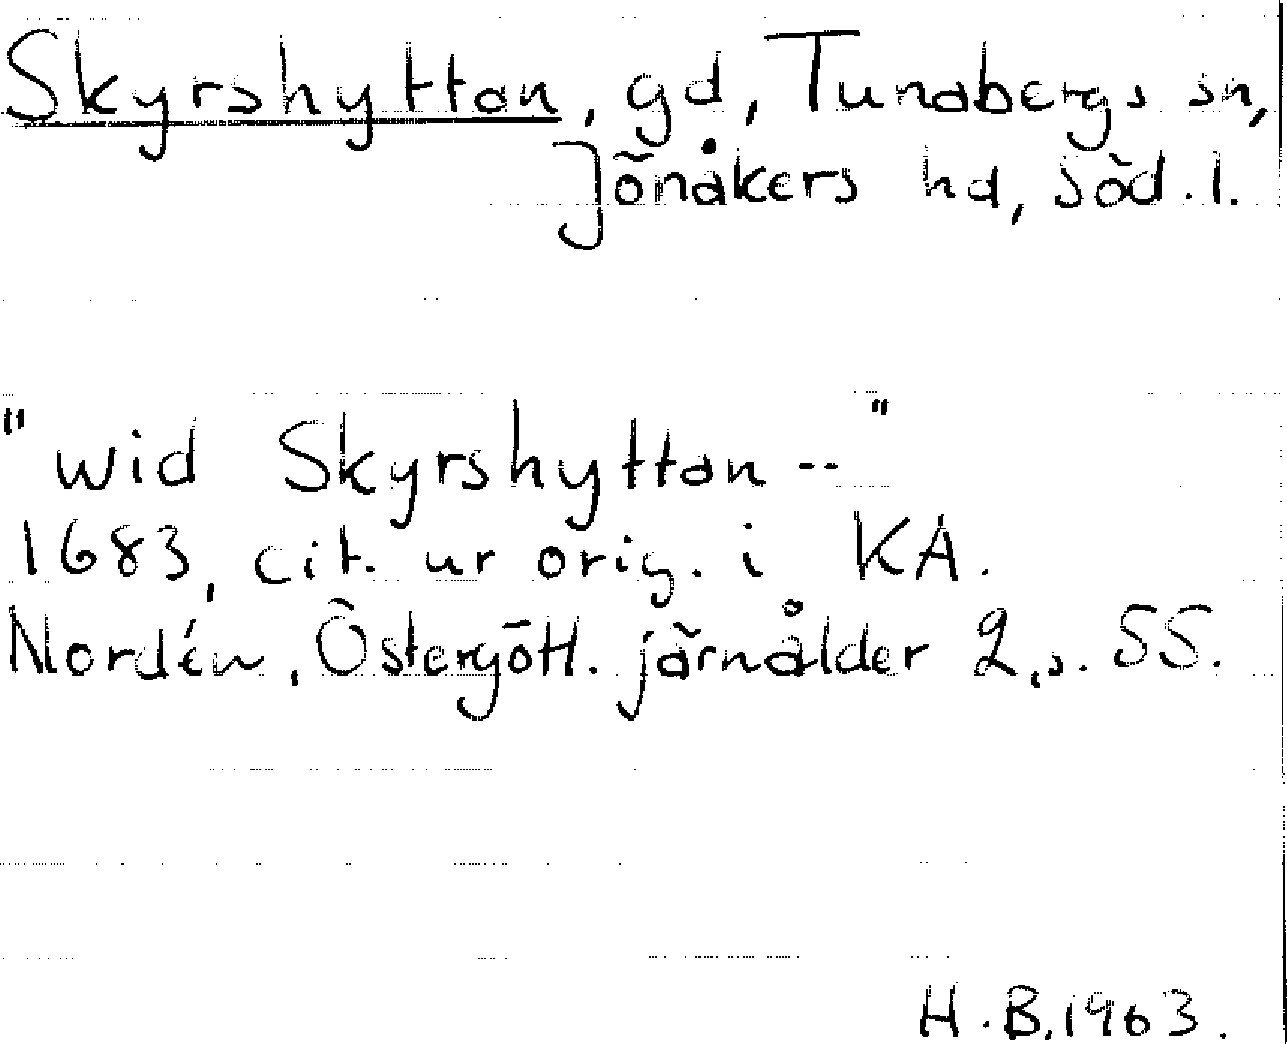 Skyrshyttan, gd, Tunabergs sn,
Jönåkers hd, Söd. l.
"wid Skyrshyttan --"
1683, cit. ur orig. i KA.
Nordén, Östergötl. järnålder 2, s. 55.
H.B. 1963.